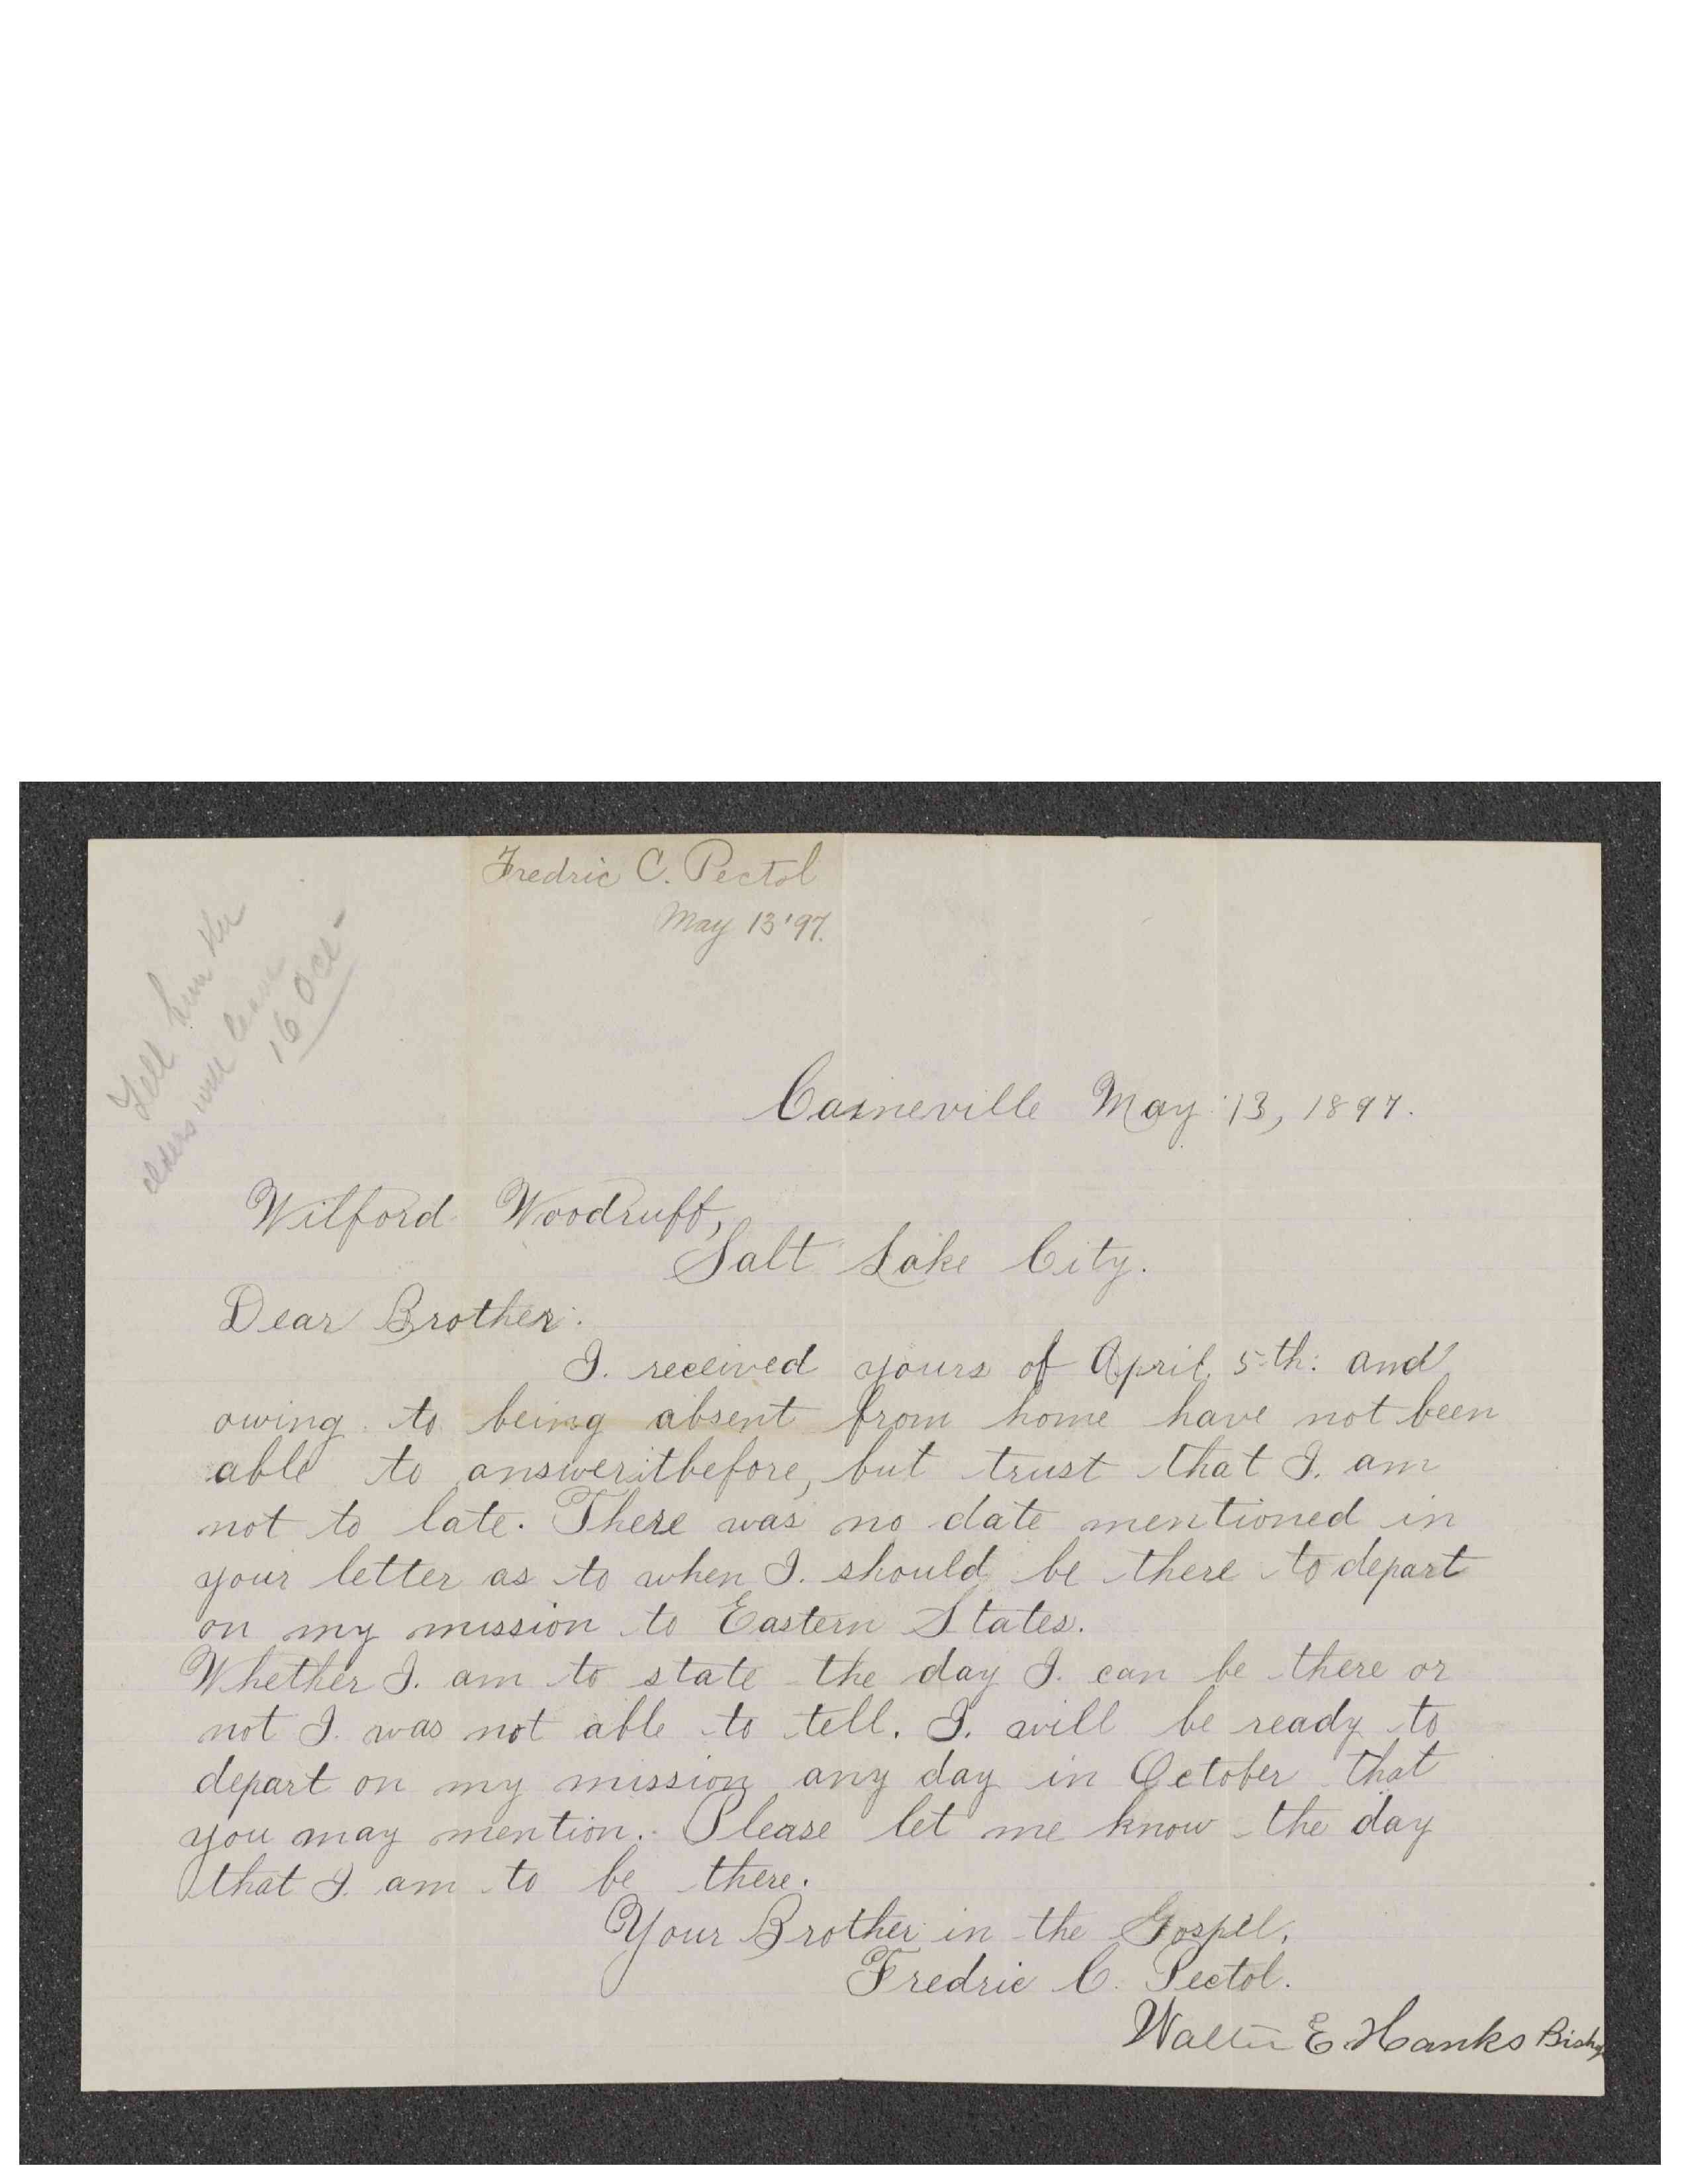 Fredric C. Pectol
May 13 '97.
Tell him the
elders will leave
16 Oct-
Caineville May 13, 1897.
Wilford Woodruff,
Salt Lake City.
Dear Brother:
I. received yours of April, 5th: and
owing to being absent from home have not been
able to answer it before, but trust that I. am
not to late. There was no date mentioned in
your letter as to when I. should be there to depart
on my mission to Eastern States.
Whether I. am to state the day I. can be there or
not I. was not able to tell. I. will be ready to
depart on my mission any day in October that
you may mention. Please let me know the day
that I. am to be there.
Your Brother in the Gospel,
Fredric C. Pectol.
Walter E. Hanks Bishop